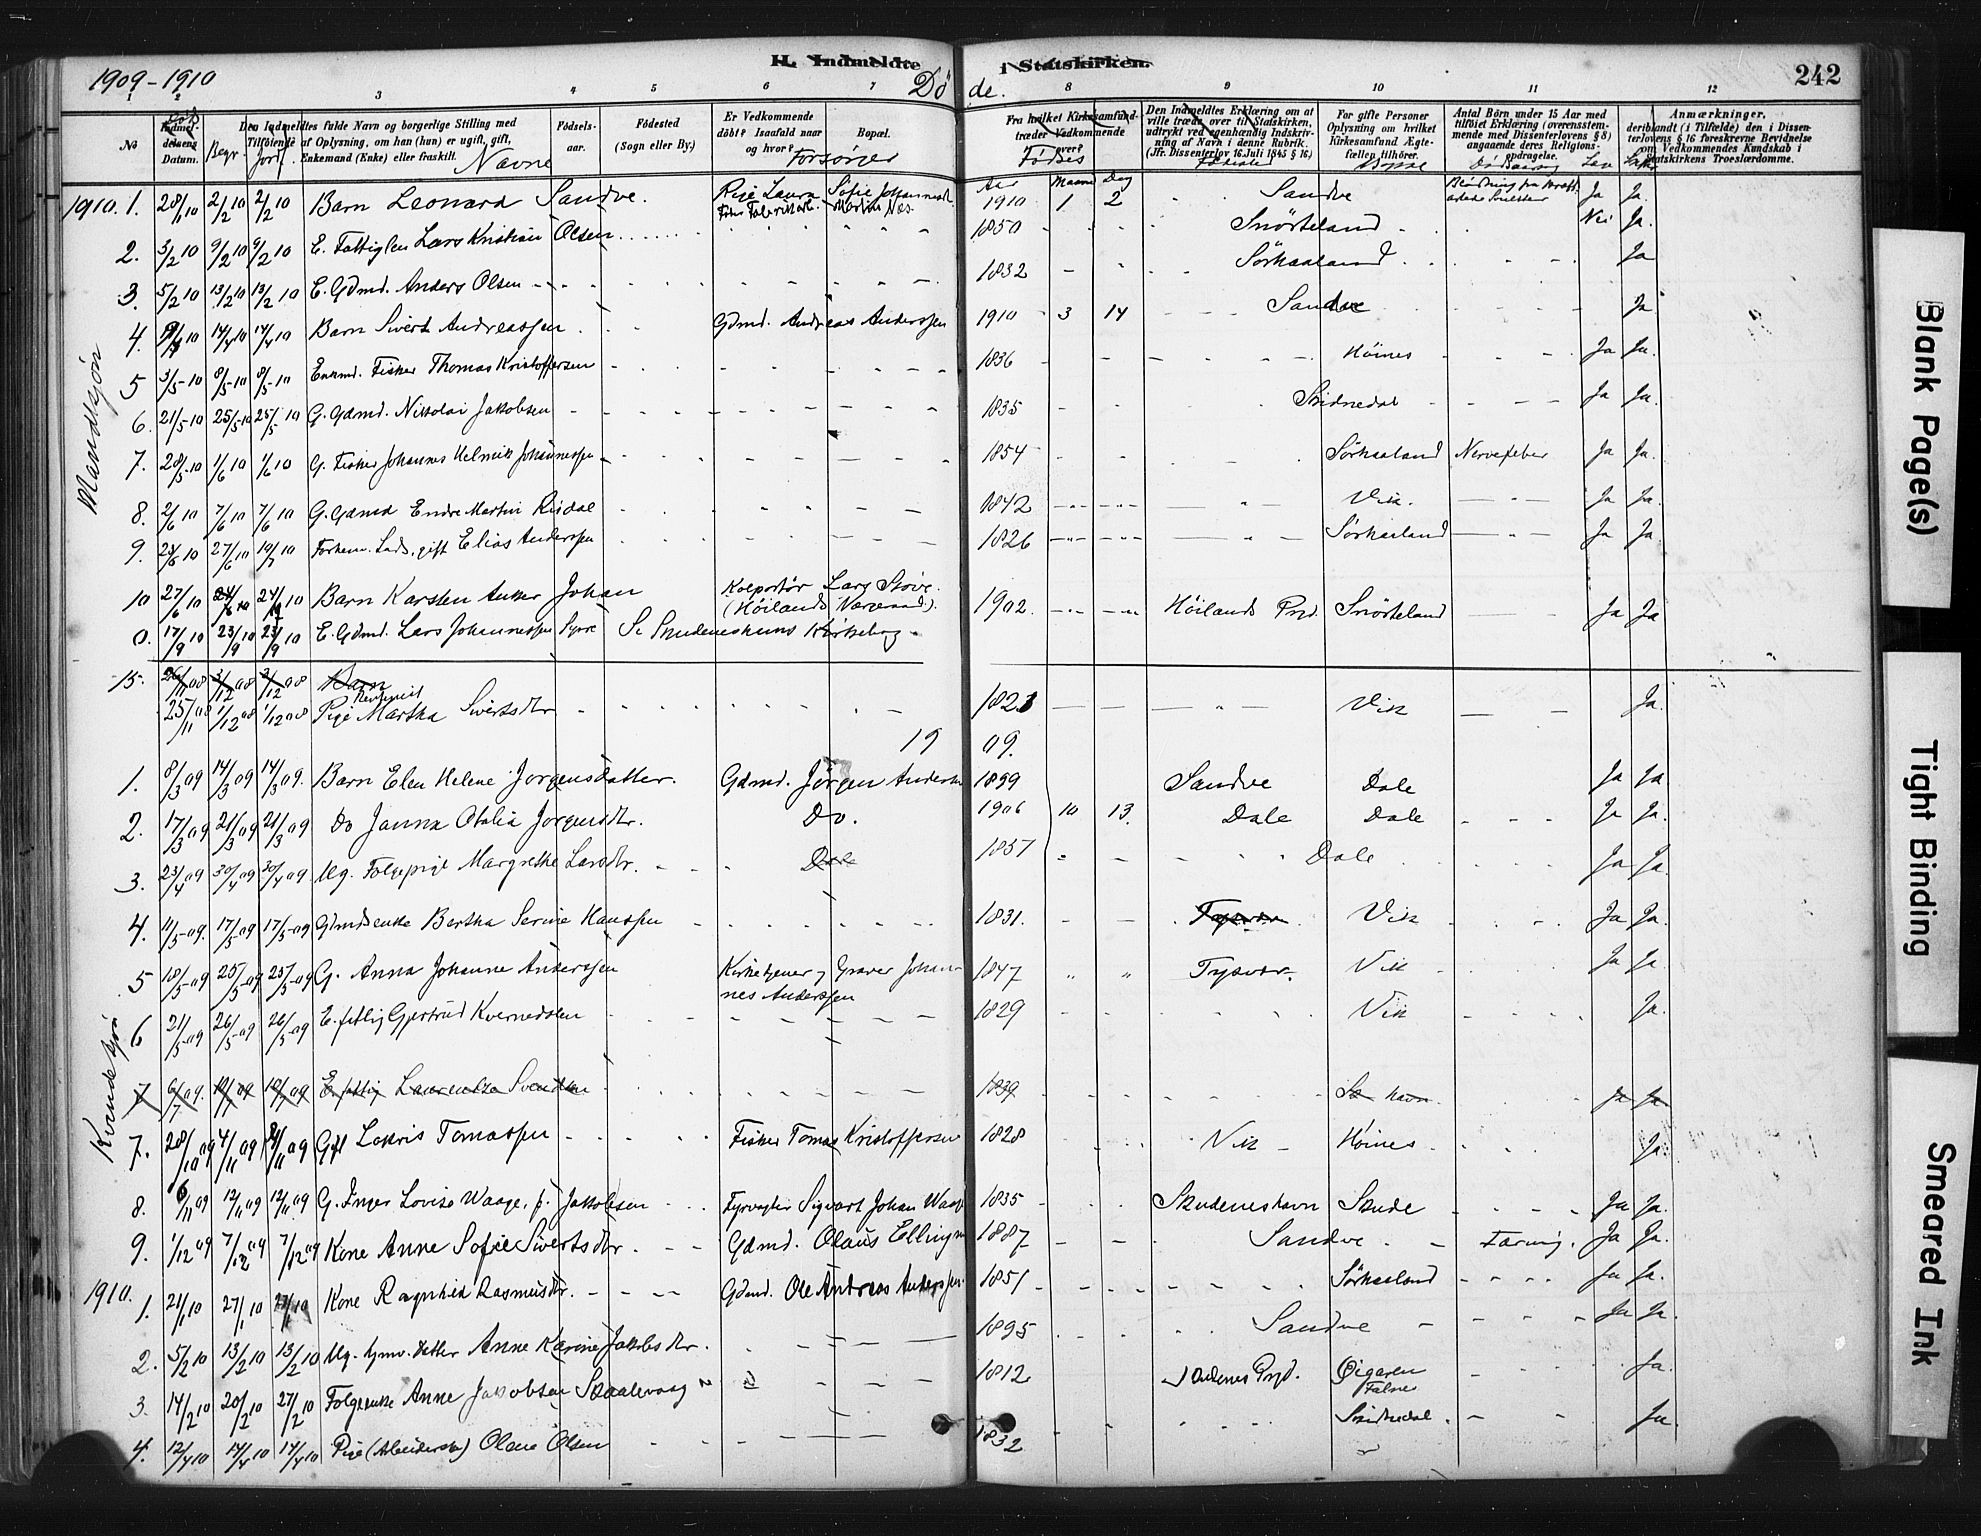 1909-1910
II. Indmeldte i Statskirken.
Döde.
242
1 2 3 4 5 6 7 8 9 10 11 12
No
Indmeldelsens Datum.
Död
Begr.
Jordf.
Den Indmeldtes fulde Navn og borgerlige Stilling med Tilføiende af Oplysning, om han (hun) er ugift, gift, Enkemand (Enke) eller fraskilt.
Navne
Fødselsaar.
Fødested (Sogn eller By.)
Er Vedkommende døbt? Isaafald naar og hvor?
Bopæl.
Forsörger
Fra hvilket Kirkesamfund træder Vedkommende over?
Fødsel
Den Indmeldtes Erklæring om at ville træde over til Statskirken, udtrykt ved egenhændig Indskrivning af Navn i denne Rubrik. (Jfr. Dissenterlov 16. Juli 1845 § 16.)
Fødested
For gifte Personer Oplysning om hvilket Kirkesamfund Ægtefællen tilhører.
Bopæl
Antal Börn under 15 Aar med tilföiet Erklæring (overensstemmende med Dissenterlovens § 8) angaaende deres Religionsopdragelse.
Dødsaarsag
Anmærkninger, deriblandt (i Tilfælde) den i Dissenterlovens § 16 foreskrevne Bevidnelse om Vedkommendes Kundskab i Statskirkens Troeslærdomme.
Aar Maaned Dag
Mandkjön
1910. 1. 28/1 10 2/2 10 2/2 10 Barn Leonard Sandve. Pige Laura Sofie Johannesd. 1910 1 2 Sandve Ja Ja.
2. 3/2 10 9/2 10 9/2 10 E. Fattiglem Lars Kristian Olsen 1850 Snörteland Nei Ja.
3. 5/2 10 13/2 10 13/2 10 E. Gdmd. Anders Olsen 1832 Sörhaaland Ja
4. 14/4 10 14/4 10 Barn Sivert Andreassen Gdmd. Andreas Anderssen 1910 3 14 Sandve Ja
5 3/5-10 8/5-10 8/5-10 Enkmd. Fisker Thomas Kristoffersen 1836 Höines Ja Ja.
6. 21/5-10 25/5-10 25/5 10 G. Gdmd. Nikolai Jakobsen 1835 Skidnedal Ja Ja.
7. 28/5-10 1/6 10 1/6 10 G. Fisker Johannes Helmik Johannessen 1854 Sörhaaland Nervefeber Ja Ja.
8. 2/6 10 7/6 10 7/6 10 G. Gdmd Endre Martin Risdal 1842 Vik. Ja Ja.
9. 23/6 10 27/6 10 19/7 10 Forhenv. Lods, gift Elias Anderssen 1826 Sörhaaland Ja Ja.
10 27/6 10 24/9 10 Barn Karsten Anker Johan Kolportör Lars Støve. (Höilands Væraad). 1902 Höilands Prgd. Snörteland Ja Ja
0. 17/9 10 23/9 10 23/9 10 E. Gdmd. Lars Johannessen Syre Se Skudeneshavns Kirkebog.
15. 26/11 08 3/12 08 3/12 08 Barn
25/11 08 1/12 08 1/12 08 Pige Martha Sivertsdtr 1823 Vik Ja.
1909.
Kvindekjön
1. 8/3 09 14/3 09 14/3 09. Barn Elen Helene Jorgensdatter. Gdmd. Jörgen Anderssen 1899 Sandve Dale Ja Ja.
2. 17/3 09 21/3 09 21/3 09 Do Janna Otalia Jorgensdtr. Do. 1906 10 13. Dale Dale Ja Ja.
3. 23/4 09 30/4 09 30/4 09 Ug. Folgepige Margrethe Larsdtr. Dale 1857 Dale Ja Ja.
4. 11/5-09. 17/5 09 17/5-09 Gdmdsenke Bertha Serine Hanssen 1831. Tysvær Vik Ja Ja.
5 18/5-09 25/5-09 25/5-09 G. Anna Johanne Anderssen Kirketjener og Graver Johannes Anderssen 1847 Tysvær. Vik Ja Ja
6 21/5-09 26/5-09 26/5 09 E. fattig Gjertrud Kvernedalen 1829 Vik Ja.
7 6/7 09. 12/7 09 12/7 09 E. fattig Laurentze Svendsen 1839 Sk havn. Ja Ja
7. 28/10 09 4/11 09 4/11 09 Gift Lovris Tomassen Fisker Tomas Kristoffersen 1828 Vik Höines Ja.
8. 6/11 09 12/11 09 12/11 09 G. Inger Lovise Waage, f. Jakobsen Fyrvogter Sigvart Johan Waage 1835 Skudeneshavn Skude Ja Ja.
9. 1/12 09 7/12 09 7/12 09 Kone Anne Sofie Sivertsdtr. Gdmd. Olaus Ellingsen 1887 Sandve Tæring. Ja Ja.
1910. 1. 21/1 10 27/1 10 27/1 10 Kone Ragnhild Rasmusdtr. Gdmd. Ole Andreas Anderssen 1851 Sörhaaland Ja Ja.
2. 5/2 10 13/2 10 13/2 10 Ug. Gmd. datter Anne Karine Jakobsdtr. 1895 Sandve Ja Ja.
3. 14/2 10 20/2 10 27/2 10 Folgeenke Anne Jakobsen Skaalevaag 1812 Skudenes Prgd. Öigaren Falnes Ja.
4. 12/4 10 17/4 10 17/4 10 Pige (Arbeiderske) Olene Olsen 1832 Skidnedal. Ja.
Blank Page(s)
Tight Binding
Smeared Ink